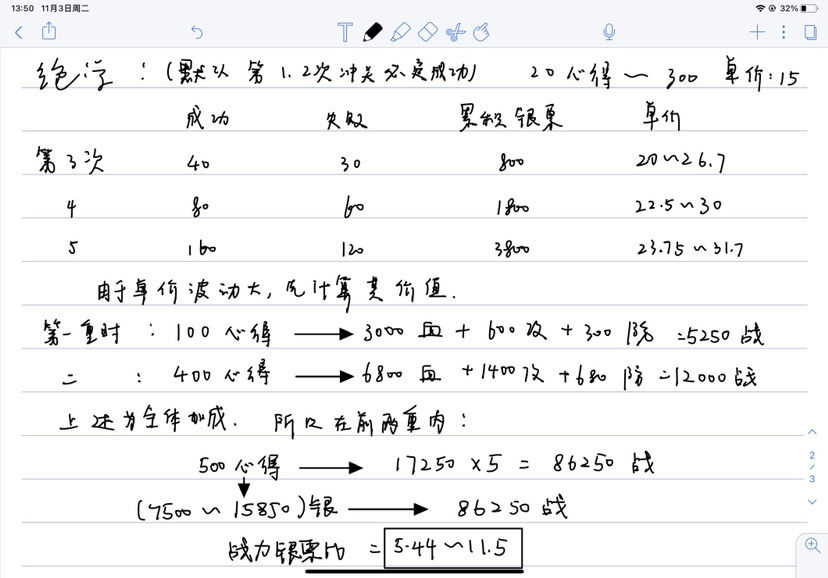 13:50 11月3日周二 32%
绝学：(默认第1.2次冲关必定成功) 20心得～300 单价:15
成功 失败 累积银票 单价
第3次 40 30 800 20～26.7
4 80 60 1800 22.5～30
5 160 120 3800 23.75～31.7
由于单价波动大,先计算其价值.
第一重时：100心得 → 3000血+600攻+300防=5250战
二：400心得 → 6800血+1400攻+680防=12000战
上述为全体加成. 所以在前两重内：
500心得 → 17250×5=86250战
(7500～15850)银 → 86250战
战力银票比 = 5.44～11.5
2/3